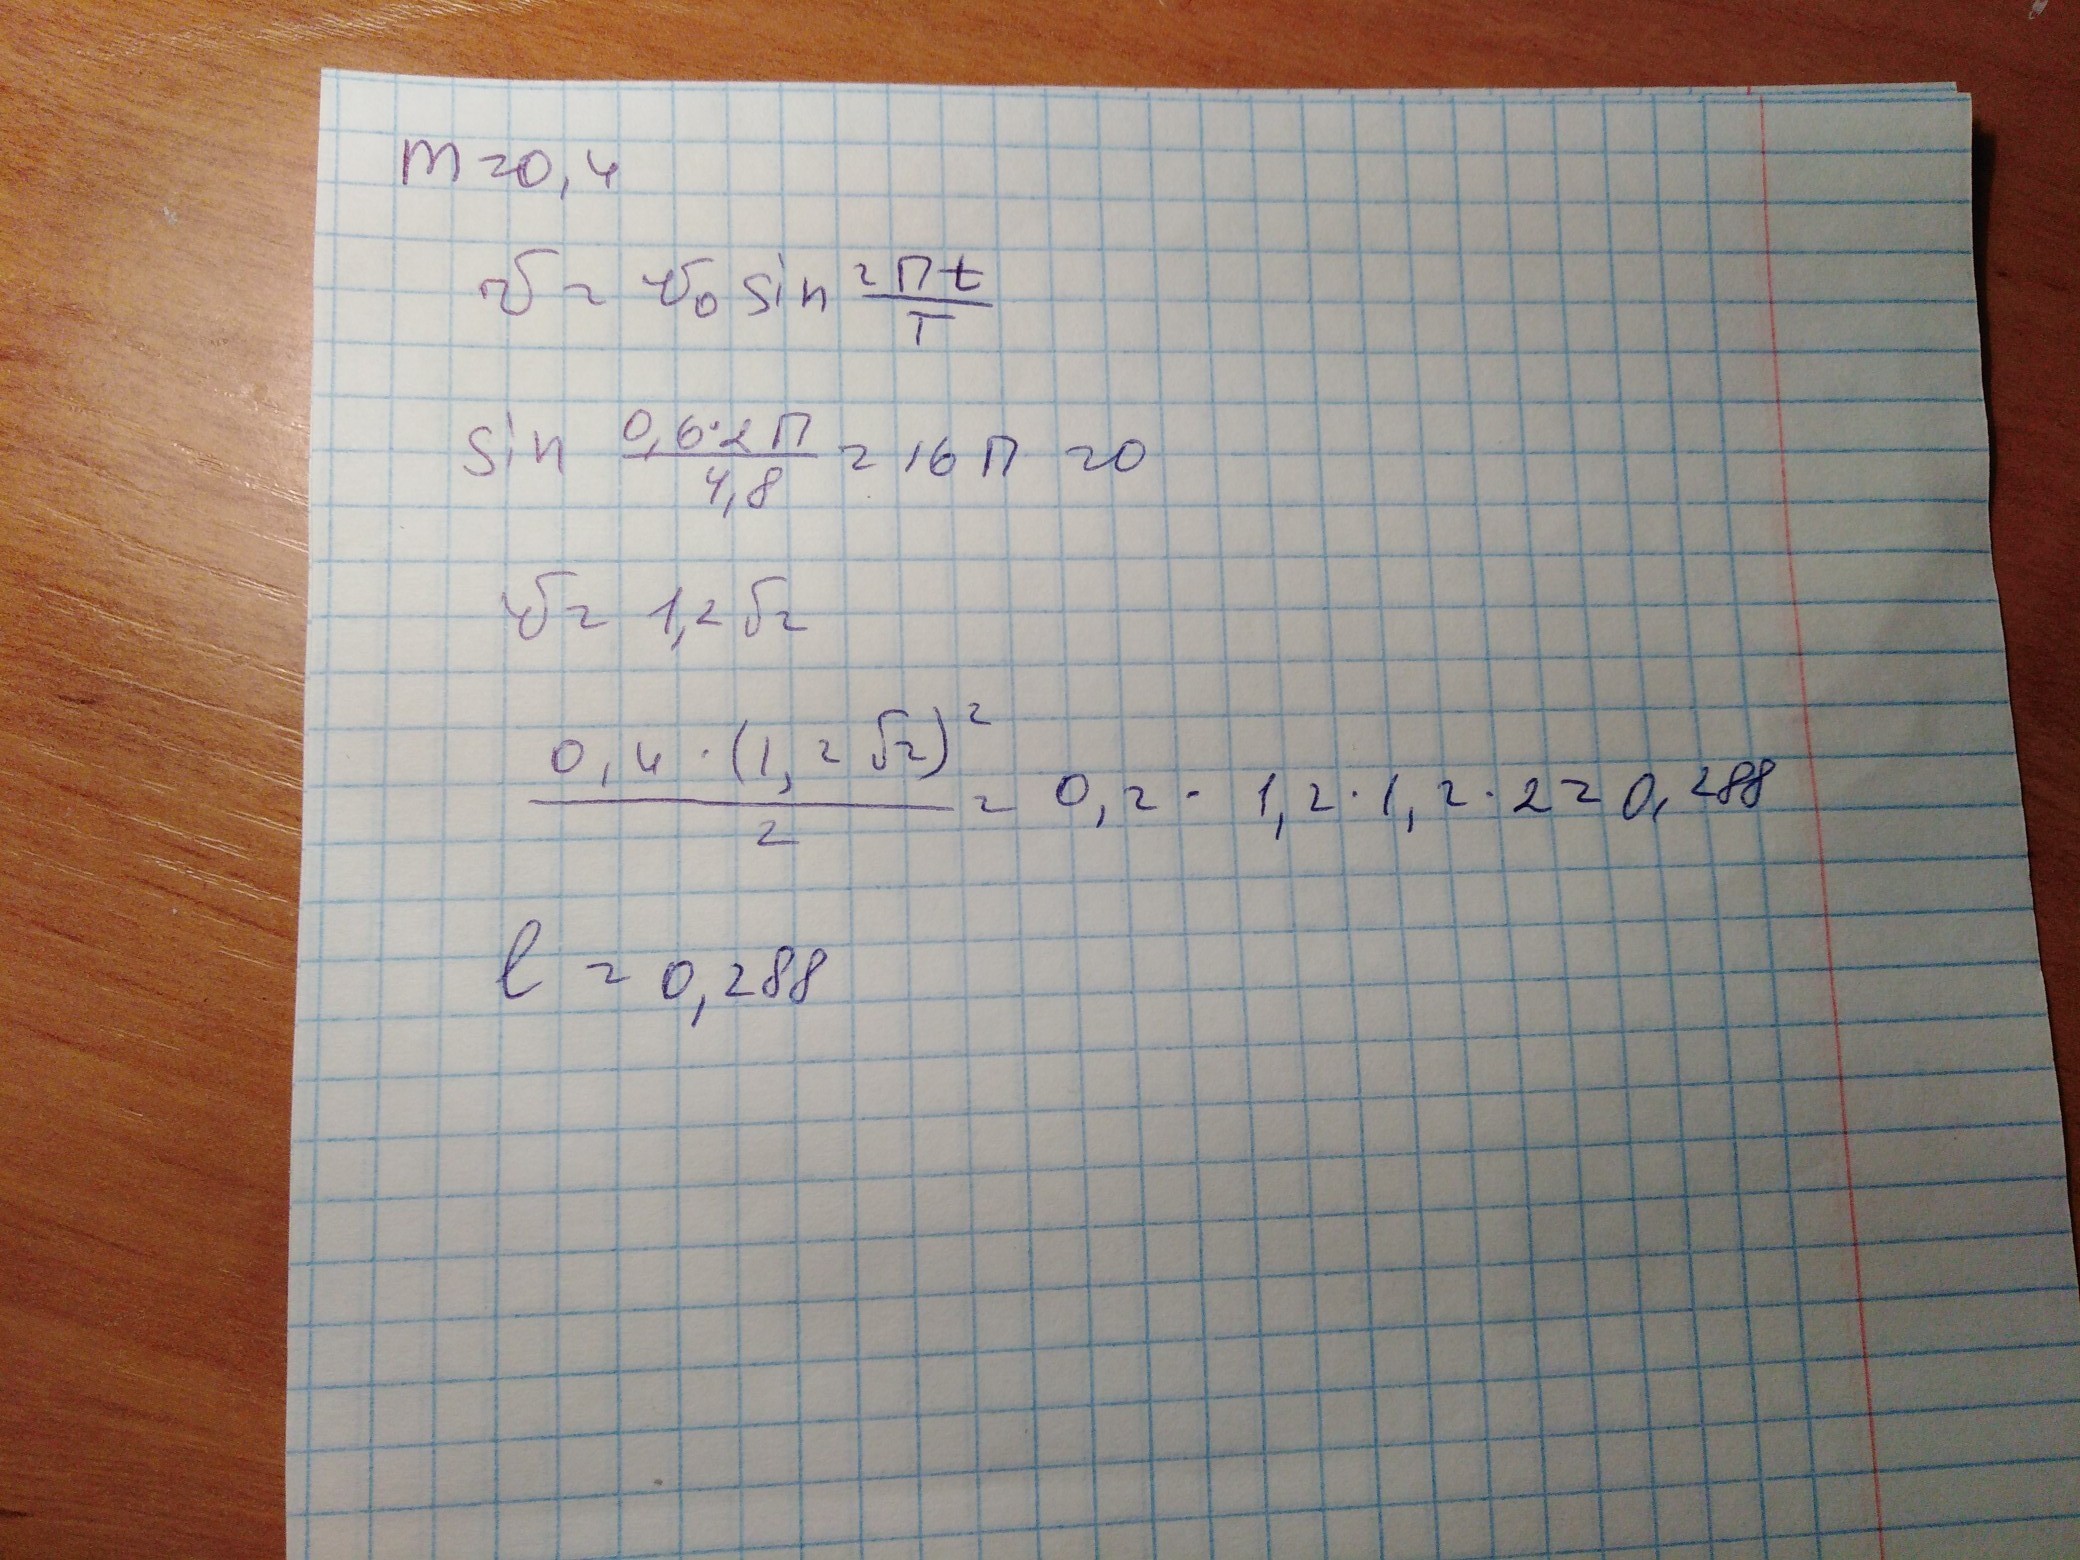 m = 0,4
v = v₀ sin 2πt/T
sin 0,6·2π/4,8 = 16π = 0
v = 1,2√2
0,4·(1,2√2)²/2 = 0,2·1,2·1,2·2 = 0,288
l = 0,288